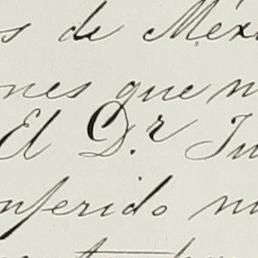 s de Méxi
nes que n
El D.r Ju
nferido n